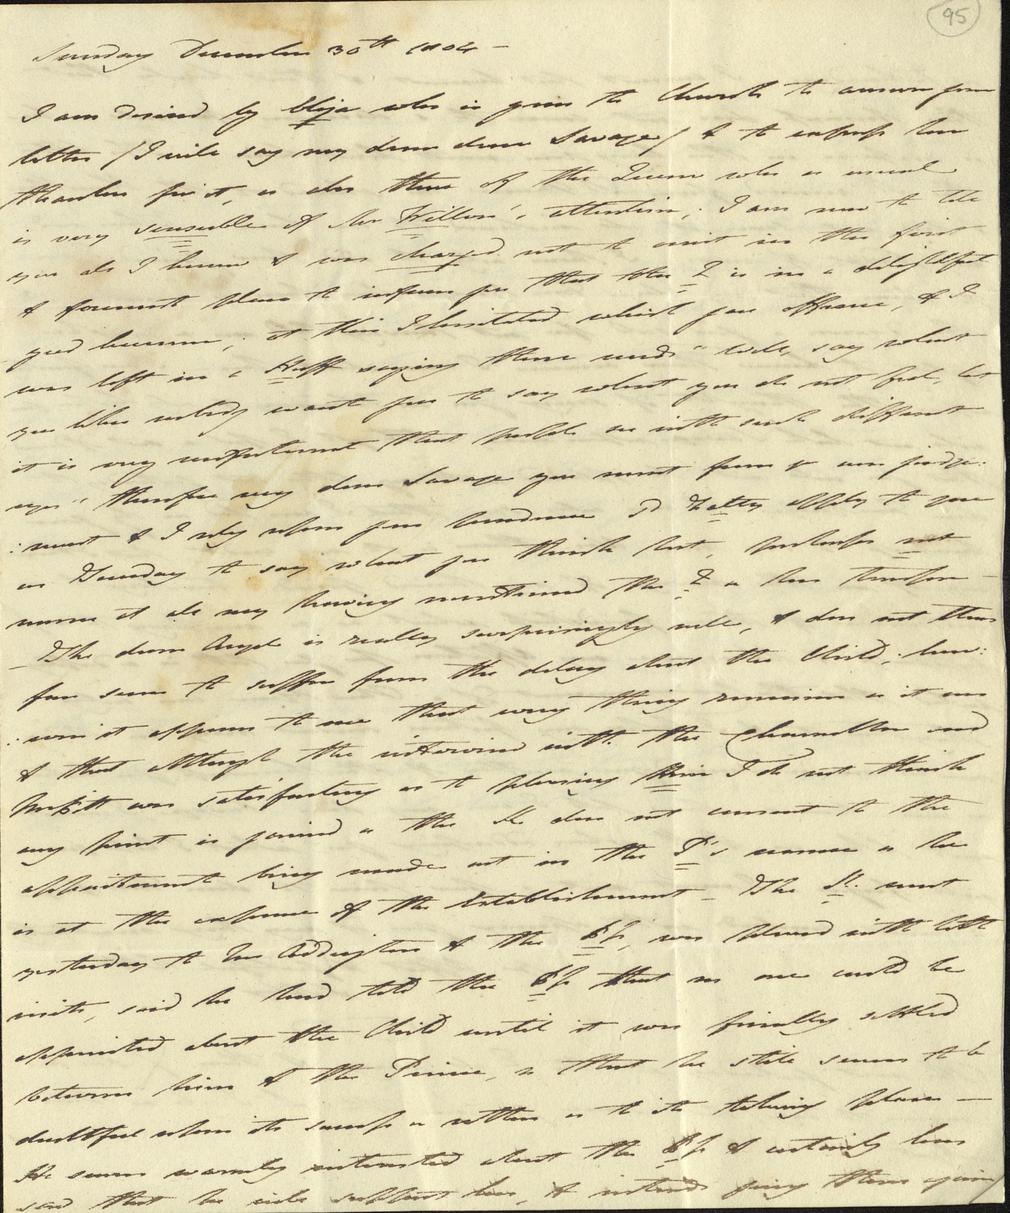 95
Sunday December 30th 1804 -
I am desired by Eliza who is gone to Church to answer your
letter (I will say my dear dear Savage) & to express her
thanks for it, as also those of the Queen who as usual
is very sensible of Mr attention; I am now to tell
you all I know & was charged not to omit in the first
& foremost place to inform you that the Q is in a delightful
good humour; at this I hesitated which gave offence, & I
was left in a Huff saying these words "well, say what
you like nobody wants you to say what you do not feel, but
it is very unfortunate that people see with such different
eyes" therefore my dear Savage you must form yr own judge:
:ment & I rely upon your kindness if applys to you
on Tuesday to say what you think best, perhaps not
name at all my having mentioned the Q as her
- The dear Angel is really surprisingly well, & does not thus
far seem to suffer from the delay about the Child, how:
:ever it appears to me that every thing remains as it was
& that although the interview with the Chancellor and
Mr Pitt was satisfactory as to pleasing him I do not think
any point is gained as the K. does not consent to the
appointments being made out in the P's name as he
is at the expence of the Establishment - The K. went
yesterday to Mr Addington & the Pss, was pleased with both
visits, said he had told the Pss that no one could be
appointed about the Child until it was finally settled
between him & the Prince, so that he still seems to be
doubtful upon its success or rather as to its taking place -
He seems warmly interested about the Pss & certainly has
said that he will support her, & intends going there again